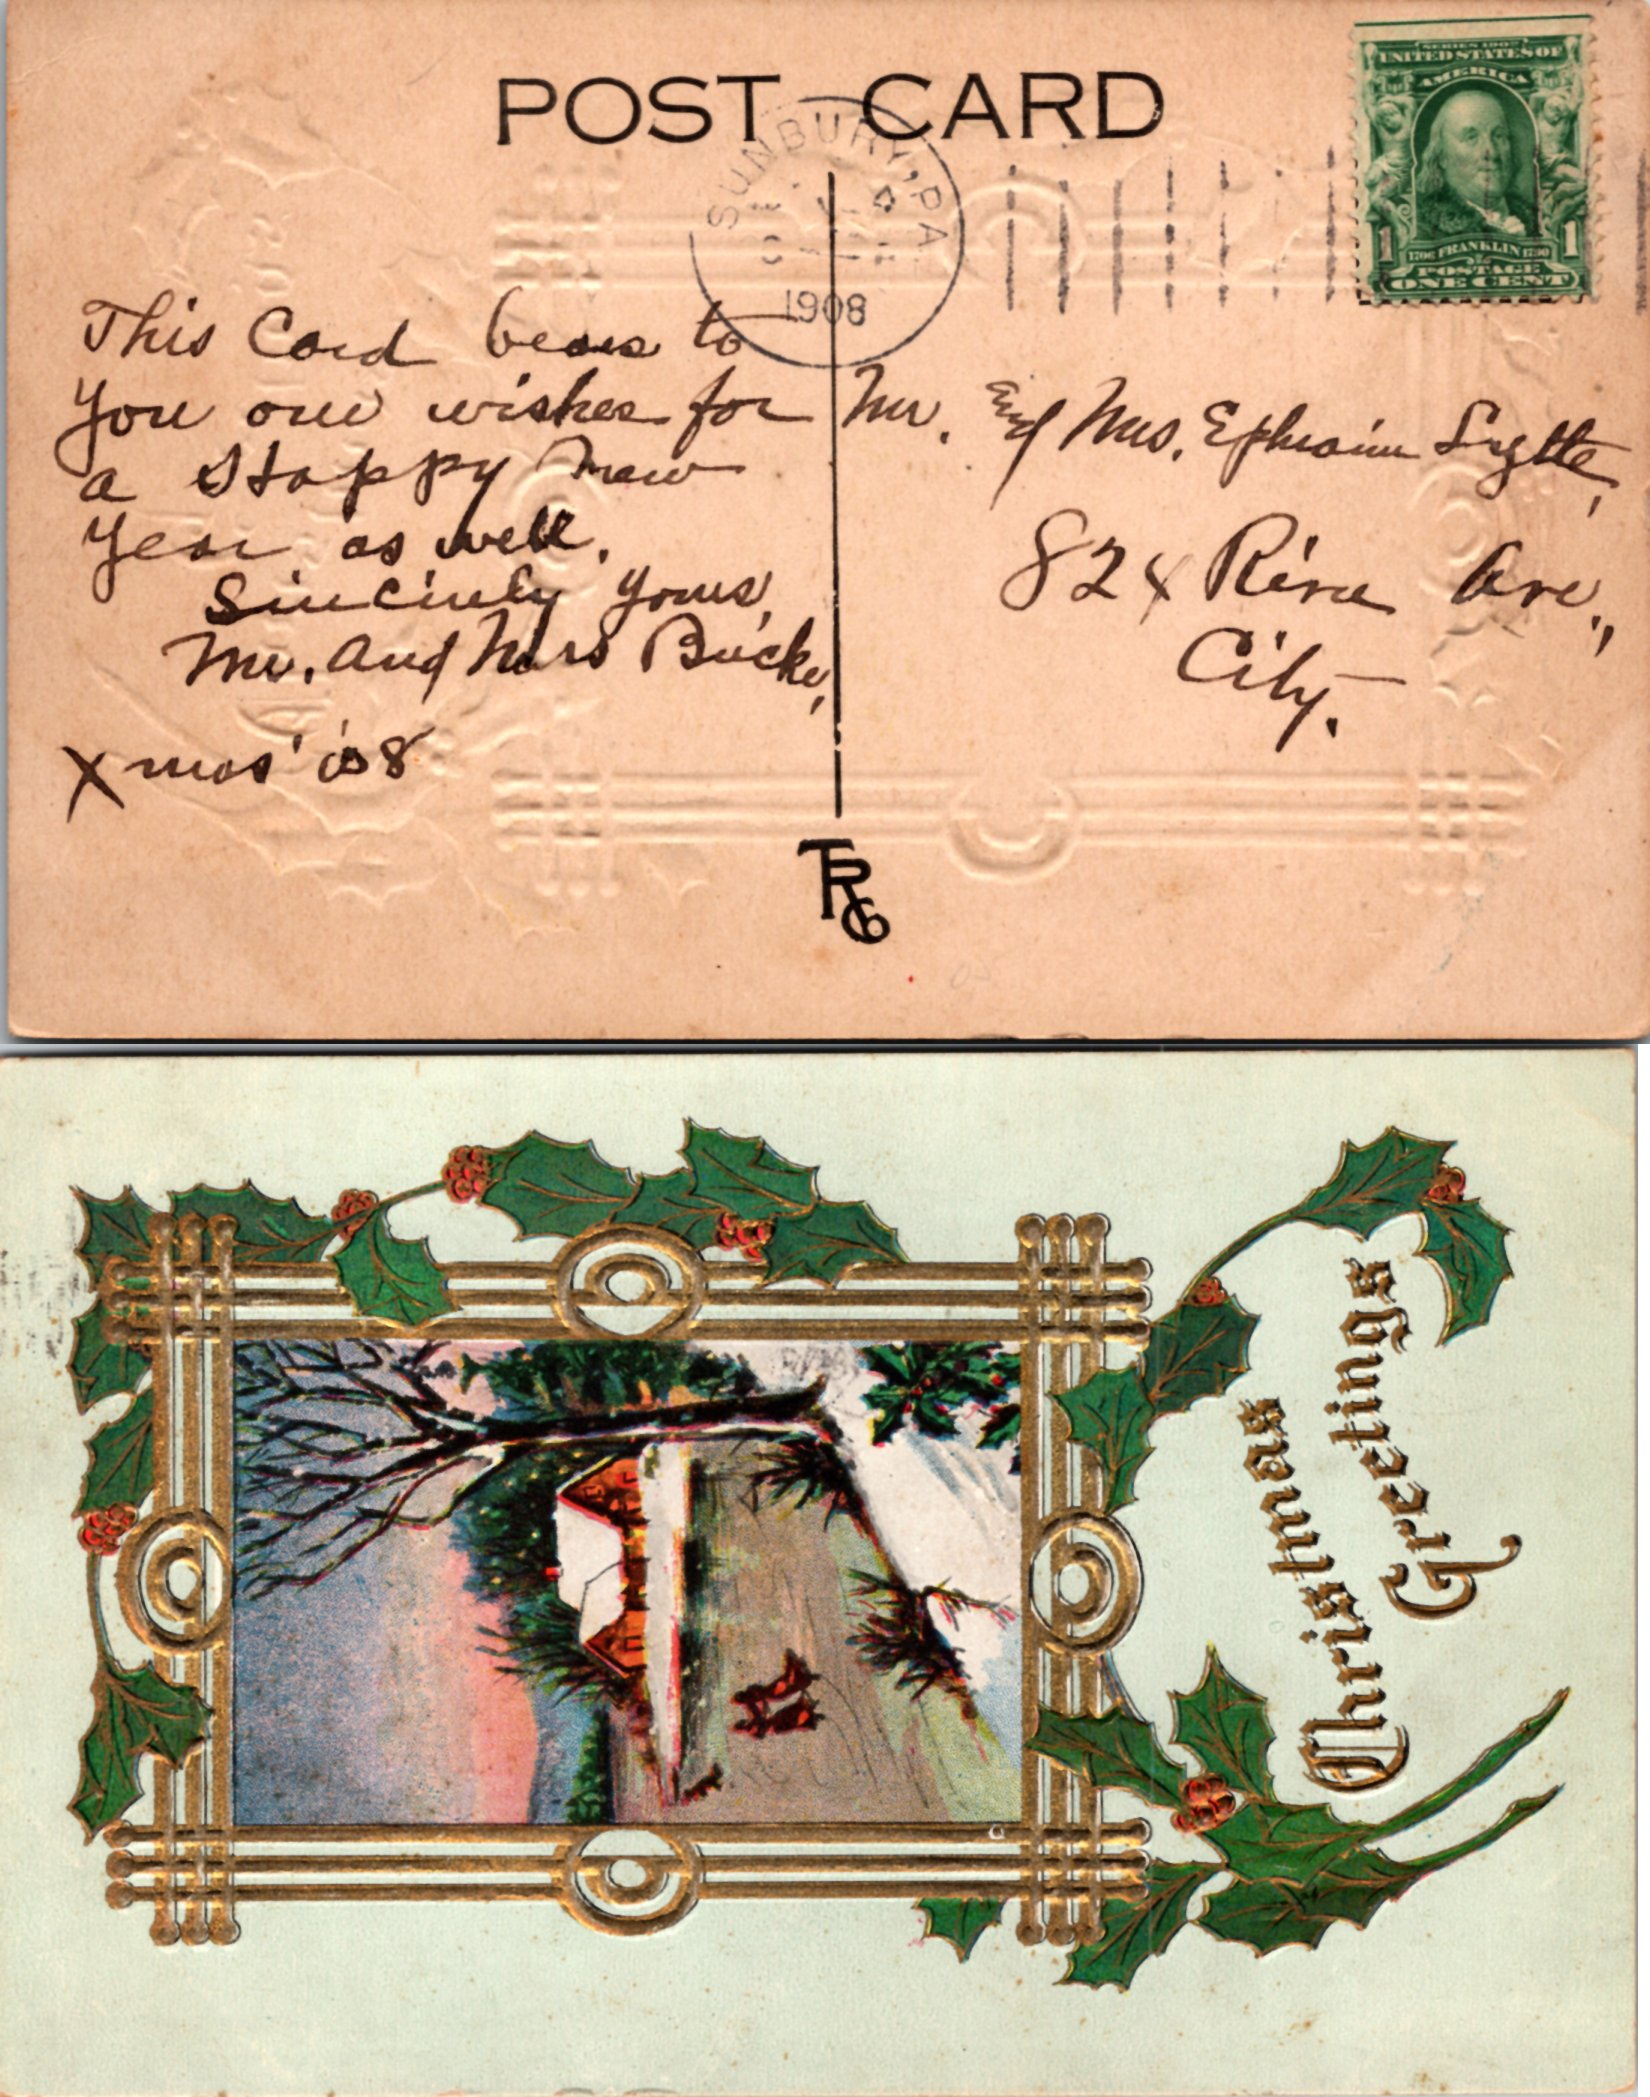 POST CARD
SUNBURY, PA.
1908
SERIES 1902
UNITED STATES OF
AMERICA
1706 FRANKLIN 1790
1 POSTAGE 1
ONE CENT
This Card bears to
you our wishes for
a Happy New
Year as well.
Sincerely yours,
Mr. and Mrs
Xmas '08
Mr. and Mrs. Ephraim Lytle,
824 River Ave.,
City.
TRCo
Christmas
Greetings